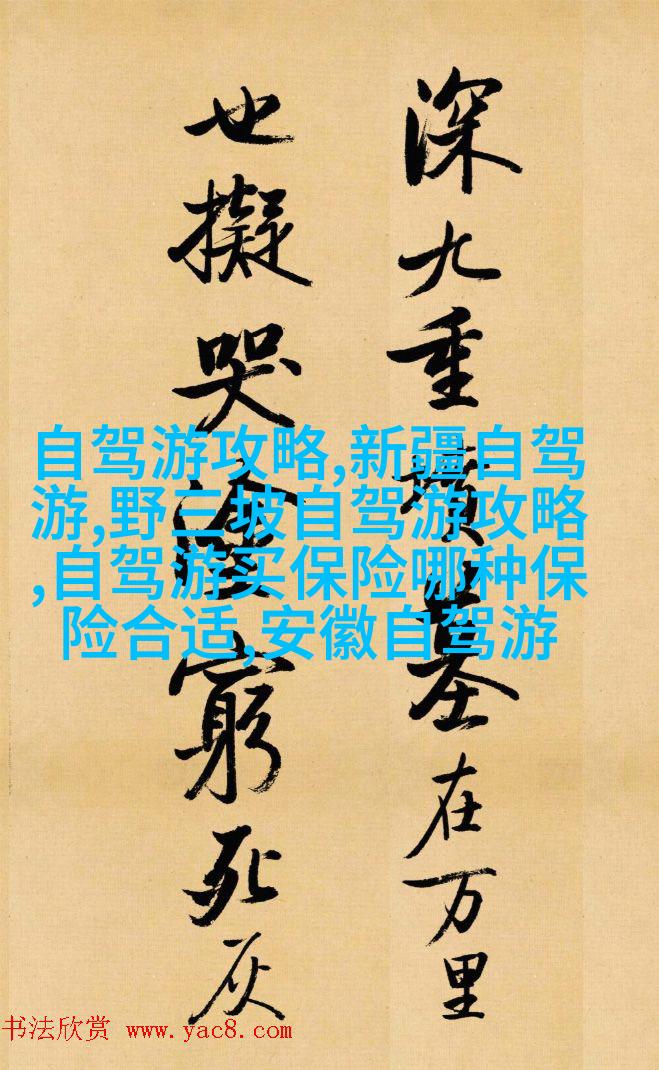 深九重墳墓在万里
也擬哭塗窮死灰
自驾游攻略,新疆自驾
游,野三坡自驾游攻略
,自驾游买保险哪种保
险合适,安徽自驾游
书法欣赏 www.yac8.com